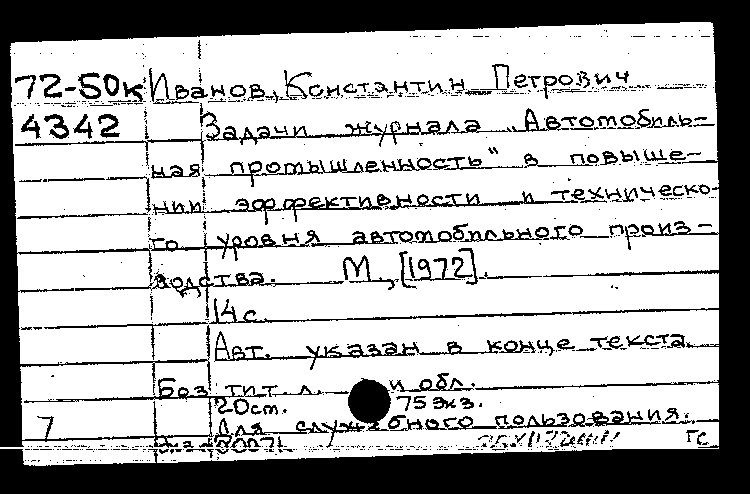 72-50к Иванов, Константин Петрович
4342 Задачи журнала „Автомобиль-
ная промышленность" в повыше-
нии эффективности и техническо-
го уровня автомобильного произ-
водства. М., [1972].
14 с.
Авт. указан в конце текста.
Без тит. л. и обл.
20 см. 75 экз.
7 Для служебного пользования.
ГС